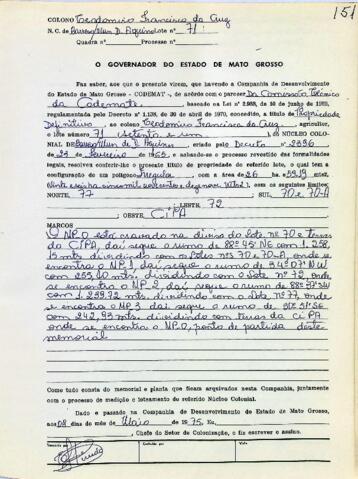 151
COLONO Teodomiro Francisco da Cruz
N. C. de Lote nº 71
Quadra nº Processo nº
O GOVERNADOR DO ESTADO DE MATO GROSSO
Faz saber, aos que o presente virem, que havendo a Companhia de Desenvolvimento
do Estado de Mato Grosso - CODEMAT -, de acôrdo com o parecer Técnico
da Codemat, baseado na Lei nº de 10 de junho de
regulamentada pelo Decreto nº 1.138, de 30 de abril de 1970, concedido, a título de Propriedade
Definitiva, ao colono Teodomiro Francisco da Cruz, agricultor,
o lote número 71 (Setenta e um) do NÚCLEO COLO-
NIAL DE criado pelo Decreto nº
de 24 de de e, achando-se o processo revestido das formalidades
legais, resolveu conferir-lhe o presente título de propriedade de referido lote, o qual tem a
configuração de um polígono irregular, com a área de 26 ha
com os seguintes limites:
NORTE, 77 SUL, 70 e 70-A
LESTE, 72
OESTE, CIPA
MARCOS
O NP.O está cravado na divisa do Lote nº 70 e terras
da CIPA, daí segue o rumo de 88º45' NE com 1.258,
15 mts. dividindo com Lotes nºs 70 e 70-A, onde se
encontra o NP.1, daí segue o rumo de NW
com mts. dividindo com o Lote nº 72, onde
se encontra o NP.2, daí segue o rumo de SW
com mts. dividindo com o Lote nº 77, onde
se encontra o NP.3 daí segue o rumo de SE
com 242,93 mts. dividindo com terras da CIPA
onde se encontra o NP.O, ponto de partida deste
memorial
Como tudo consta do memorial e planta que ficam arquivados nesta Companhia, juntamente
com o processo de medição e loteamento do referido Núcleo Colonial.
Dado e passado na Companhia de Desenvolvimento do Estado de Mato Grosso,
aos 08 dias do mês de Maio de 1975. Eu,
, Chefe do Setor de Colonização, o fiz escrever e assino.